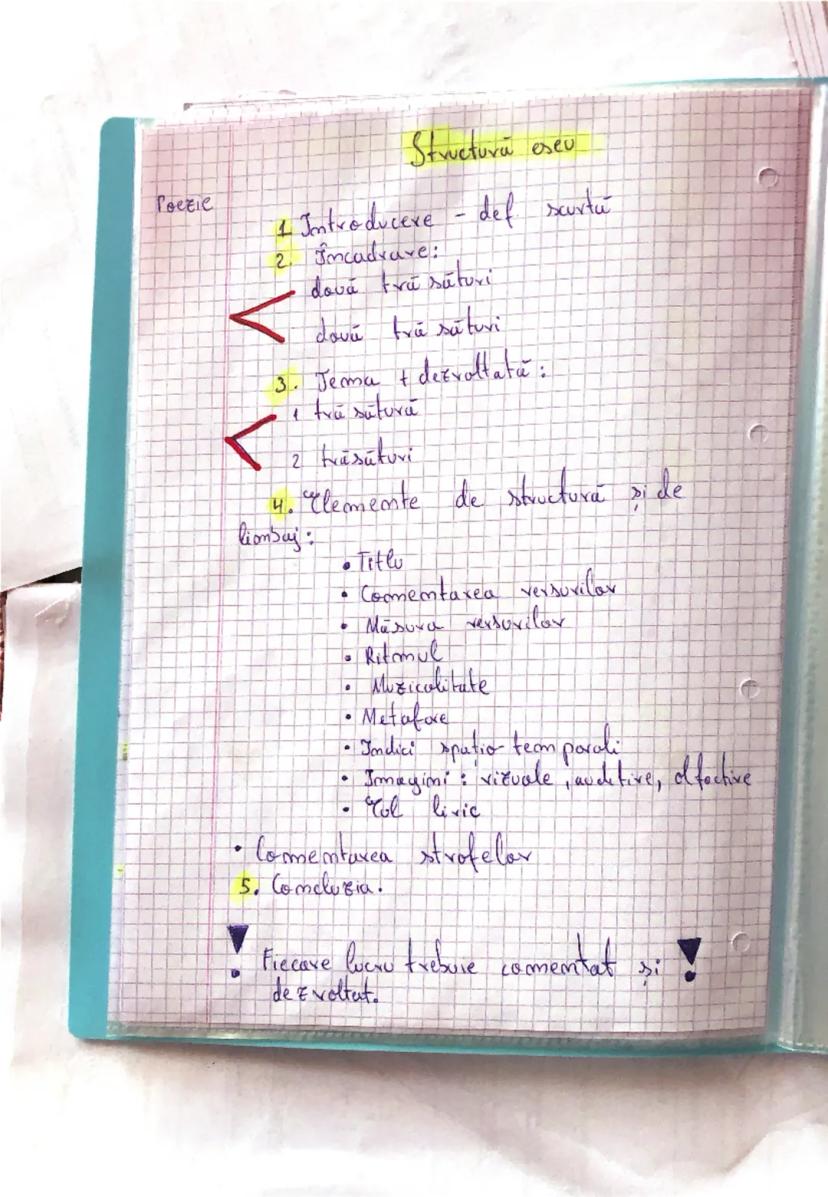 Structură eseu
Poezie
1 Introducere - def scurtă
2. Încadrare:
două trăsături
două trăsături
3. Tema + dezvoltată:
1 trăsătură
2 trăsături
4. Elemente de structură și de
limbaj:
• Titlu
• Comentarea versurilor
• Măsura versurilor
• Ritmul
• Muzicalitate
• Metafore
• Indici spațio-temporali
• Imagini: vizuale, auditive, olfactive
• Eul liric
• Comentarea strofelor
5. Concluzia.
! Fiecare lucru trebuie comentat și !
dezvoltat.